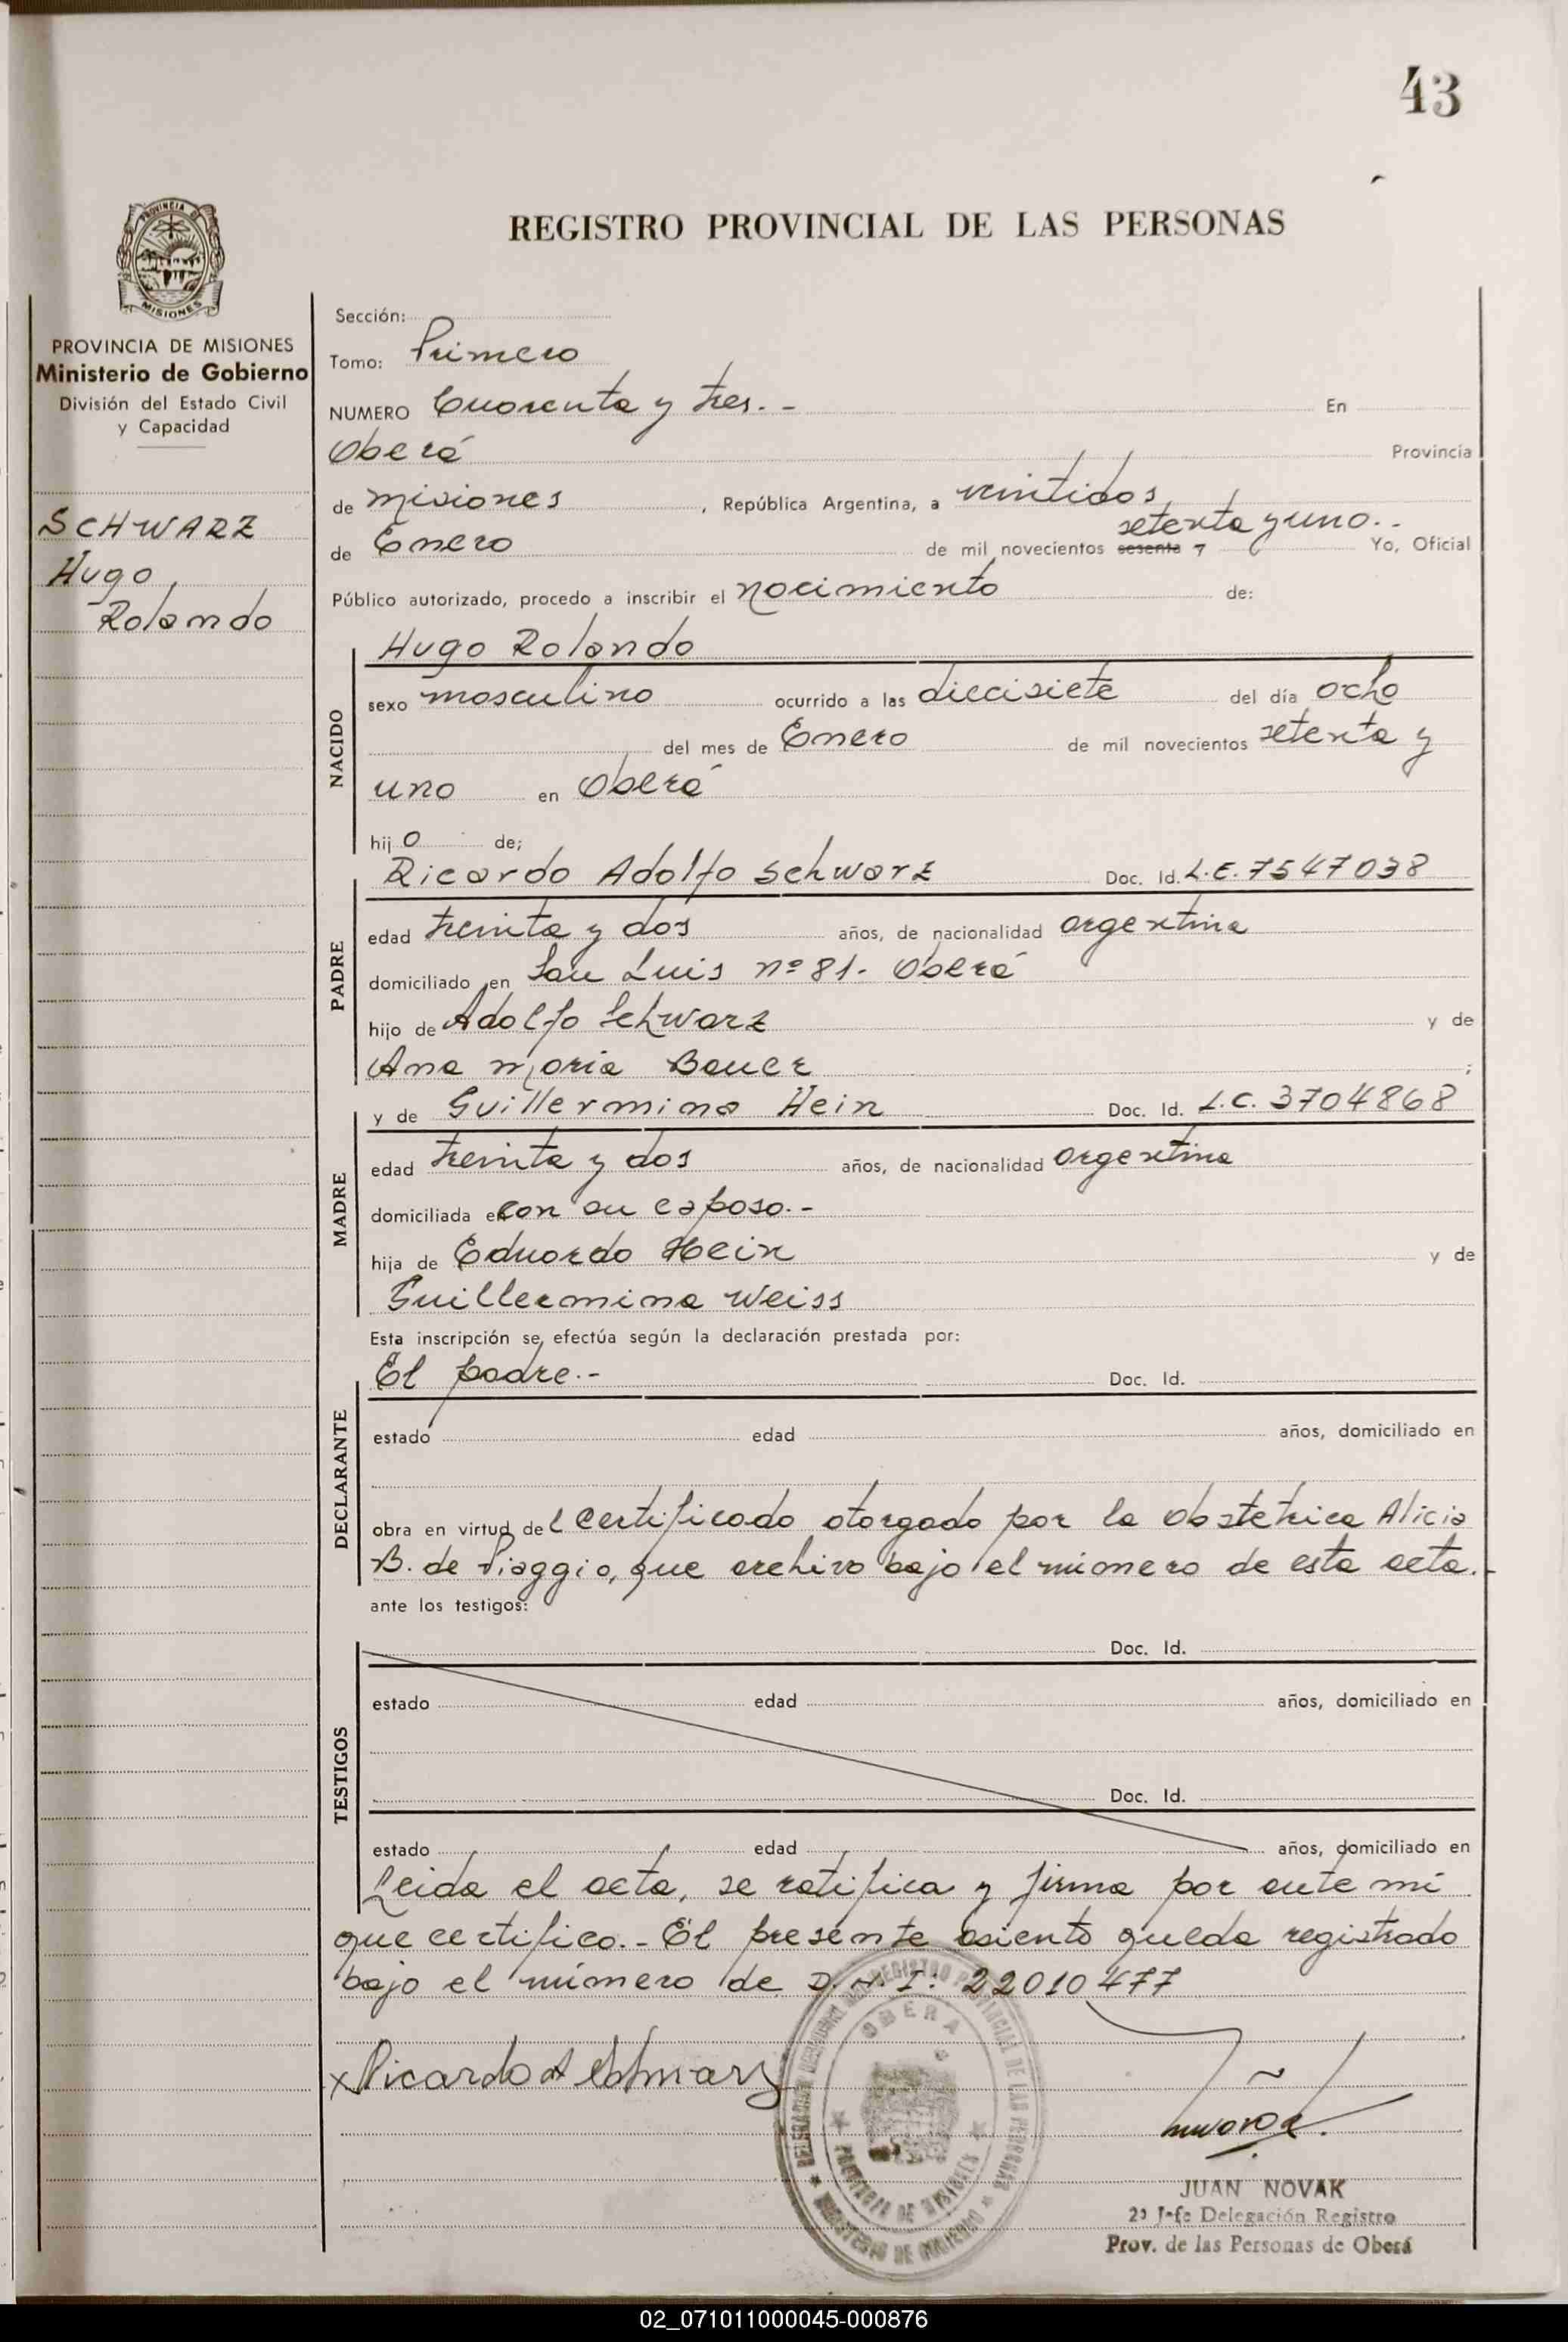 43
REGISTRO PROVINCIAL DE LAS PERSONAS
PROVINCIA DE
MISIONES
PROVINCIA DE MISIONES
Ministerio de Gobierno
División del Estado Civil
y Capacidad
SCHWARZ
Hugo
Rolando
Sección:
Tomo: Primero
NUMERO Cuarenta y tres.- En
Oberá Provincia
de Misiones, República Argentina, a veintidos
setenta y uno.-
de Enero de mil novecientos sesenta y Yo, Oficial
Público autorizado, procedo a inscribir el nacimiento de:
NACIDO
Hugo Rolando
sexo masculino ocurrido a las diecisiete del día ocho
del mes de Enero de mil novecientos setenta y
uno en Oberá
hijo de;
PADRE
Ricardo Adolfo Schwarz Doc. Id. L.E. 7547038
edad treinta y dos años, de nacionalidad argentina
domiciliado en San Luis nº 81- Oberá
hijo de Adolfo Schwarz y de
Ana Maria Bauer ;
MADRE
y de Guillermina Hein Doc. Id. L.C. 3704868
edad treinta y dos años, de nacionalidad argentina
domiciliada en con su esposo.-
hija de Eduardo Hein y de
Guillermina Weiss
Esta inscripción se efectúa según la declaración prestada por:
DECLARANTE
El padre.- Doc. Id.
estado edad años, domiciliado en
obra en virtud del certificado otorgado por la obstetrica Alicia
B. de Piaggio, que archivo bajo el número de esta acta.-
ante los testigos:
TESTIGOS
Doc. Id.
estado edad años, domiciliado en
Doc. Id.
estado edad años, domiciliado en
Leida el acta, se ratifica y firma por ante mi
que certifico.- El presente asiento queda registrado
bajo el número de D.N.I: 22010477
x Ricardo A Schwarz
OBERA
PROVINCIA DE MISIONES
MINISTERIO DE GOBIERNO
REGISTRO PROVINCIAL DE LAS PERSONAS
JUAN NOVAK
2º Jefe Delegación Registro
Prov. de las Personas de Oberá
02_071011000045-000876